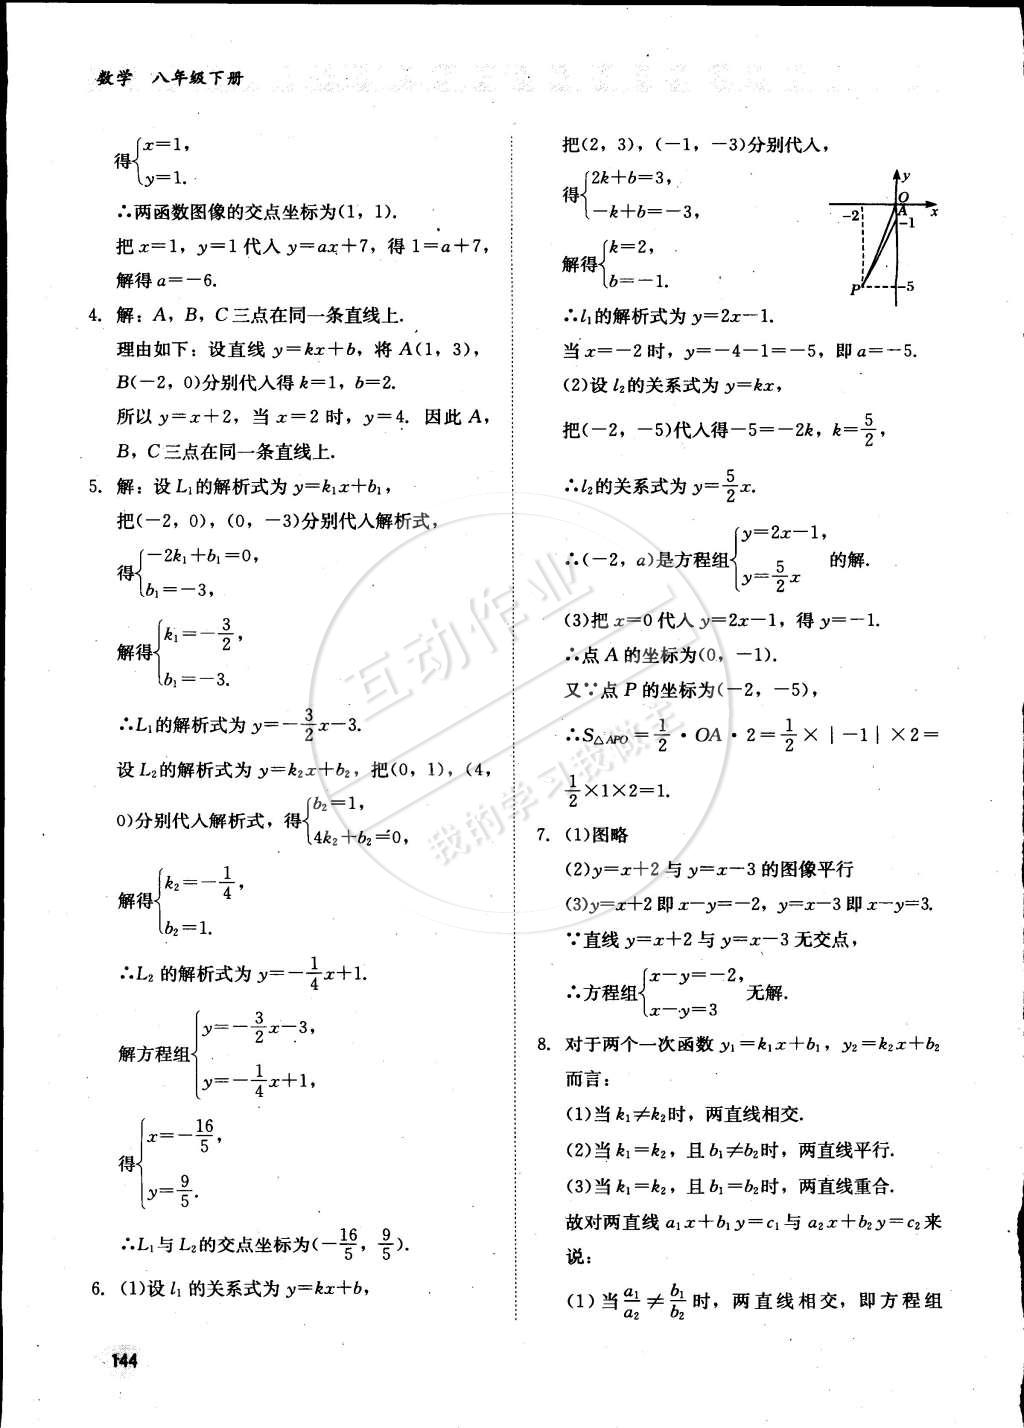 数学 八年级下册
得{x=1,
y=1.
∴两函数图像的交点坐标为(1，1).
把 x=1，y=1 代入 y=ax+7，得 1=a+7，
解得 a=-6.
4. 解：A，B，C三点在同一条直线上.
理由如下：设直线 y=kx+b，将 A(1，3)，
B(-2，0)分别代入得 k=1，b=2.
所以 y=x+2，当 x=2 时，y=4. 因此 A，
B，C三点在同一条直线上.
5. 解：设 L₁的解析式为 y=k₁x+b₁，
把(-2，0)，(0，-3)分别代入解析式，
得{-2k₁+b₁=0,
b₁=-3,
解得{k₁=-3/2,
b₁=-3.
∴L₁的解析式为 y=-3/2x-3.
设 L₂的解析式为 y=k₂x+b₂，把(0，1)，(4，
0)分别代入解析式，得{b₂=1,
4k₂+b₂=0,
解得{k₂=-1/4,
b₂=1.
∴L₂ 的解析式为 y=-1/4x+1.
解方程组{y=-3/2x-3,
y=-1/4x+1,
得{x=-16/5,
y=9/5.
∴L₁与 L₂的交点坐标为(-16/5，9/5).
6. (1)设 l₁ 的关系式为 y=kx+b，
144
把(2，3)，(-1，-3)分别代入，
得{2k+b=3,
-k+b=-3,
解得{k=2,
b=-1.
y
O
x
A
-1
-2
P
-5
∴l₁的解析式为 y=2x-1.
当 x=-2 时，y=-4-1=-5，即 a=-5.
(2)设 l₂的关系式为 y=kx，
把(-2，-5)代入得-5=-2k，k=5/2，
∴l₂的关系式为 y=5/2x.
∴(-2，a)是方程组{y=2x-1,
y=5/2x 的解.
(3)把 x=0 代入 y=2x-1，得 y=-1.
∴点 A 的坐标为(0，-1).
又∵点 P 的坐标为(-2，-5)，
∴S△APO=1/2·OA·2=1/2×|-1|×2=
1/2×1×2=1.
7. (1)图略
(2)y=x+2 与 y=x-3 的图像平行
(3)y=x+2 即 x-y=-2，y=x-3 即 x-y=3.
∵直线 y=x+2 与 y=x-3 无交点，
∴方程组{x-y=-2,
x-y=3 无解.
8. 对于两个一次函数 y₁=k₁x+b₁，y₂=k₂x+b₂
而言：
(1)当 k₁≠k₂时，两直线相交.
(2)当 k₁=k₂，且 b₁≠b₂时，两直线平行.
(3)当 k₁=k₂，且 b₁=b₂时，两直线重合.
故对两直线 a₁x+b₁y=c₁与 a₂x+b₂y=c₂来
说：
(1)当 a₁/a₂ ≠ b₁/b₂ 时，两直线相交，即方程组
互动作业
我的学习我做主